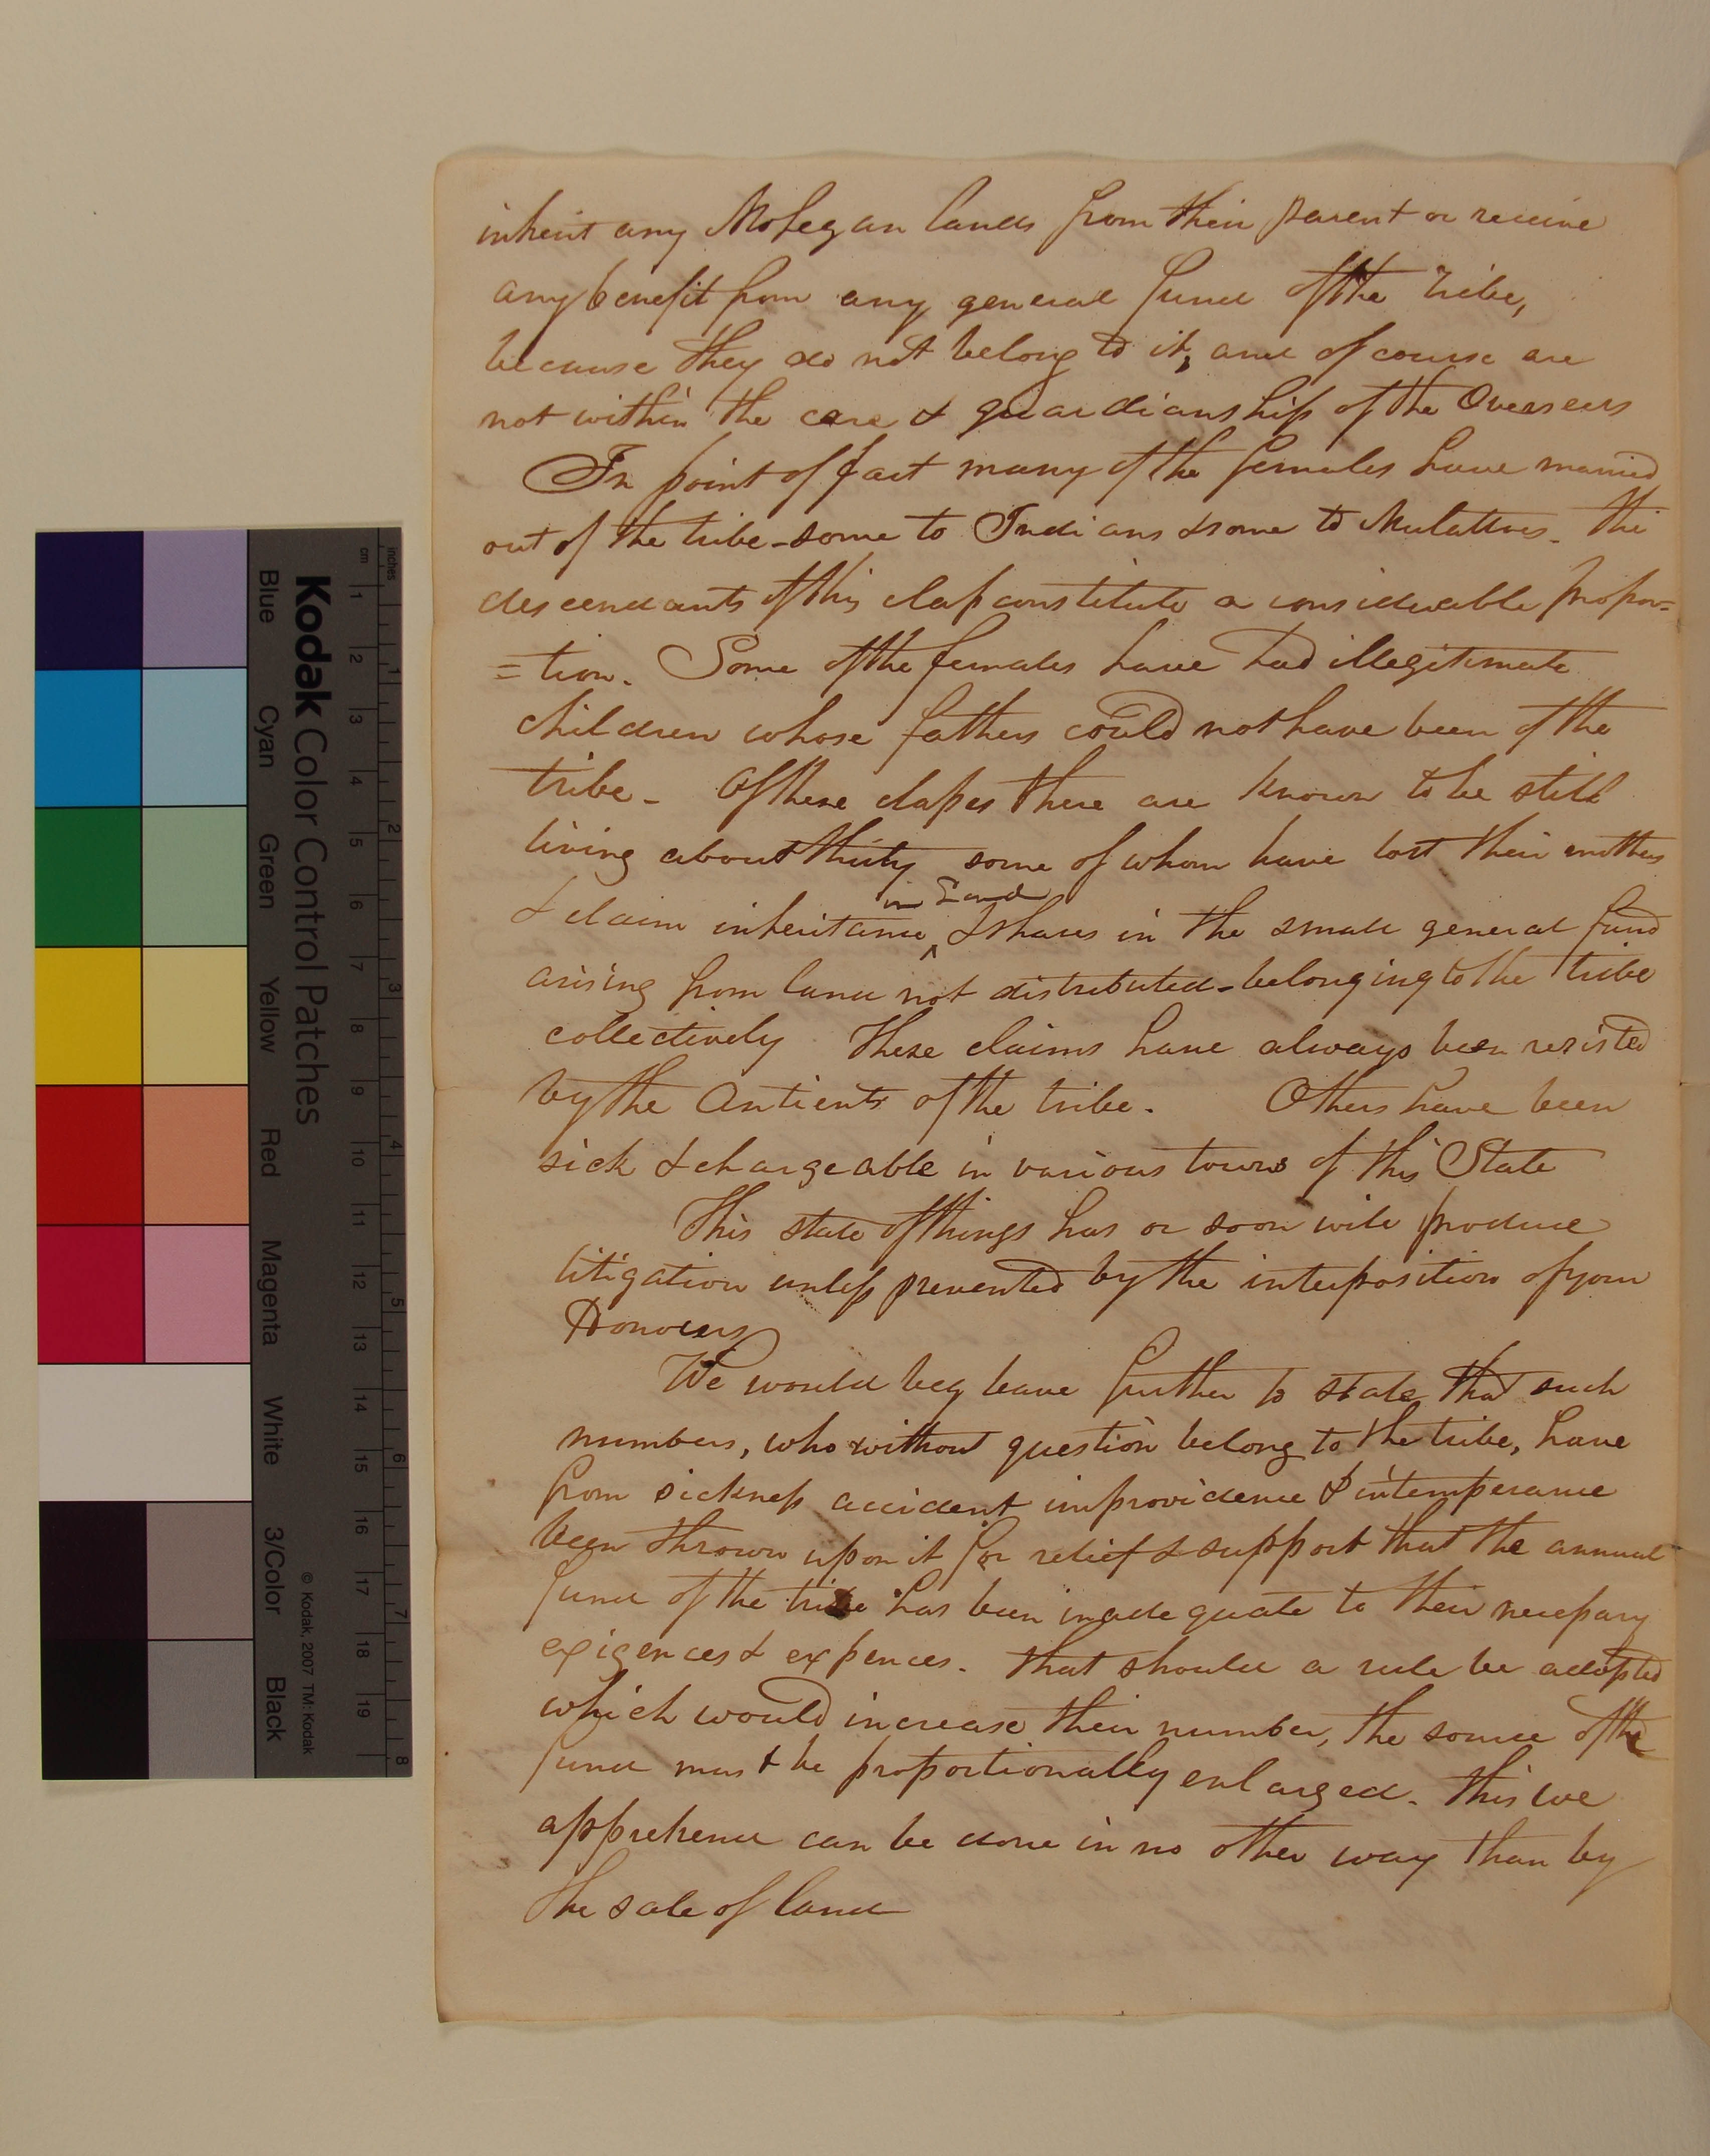 inherit any Mohegan lands from their parent or receive
any benefit from any general fund of the tribe,
because they do not belong to it; and of course are
not within the care & guardianship of the Overseers
In point of fact many of the females have married
out of the tribe - some to Indians & some to Mulattoes. The
descendants of this class constitute a considerable propor=
=tion. Some of the females have had illegitimate
children whose fathers could not have been of the
tribe - Of these classes there are known to be still
living about thirty some of whom have lost their mothers
in Land
& claim inheritance ^ & shares in the small general fund
arising from land not distributed - belonging to the tribe
collectively These claims have always been resisted
by the Antients of the tribe. Others have been
sick & chargeable in various towns of this State
This state of things has or soon will produce
litigation unless prevented by the interposition of your
Honours
We would beg leave further to state that such
numbers, who without question belong to the tribe, have
from sickness accident improvidence & intemperance
been thrown upon it for relief & support that the annual
fund of the tribe has been inadequate to their necessary
exigences & expences. That should a rule be adopted
which would increase their number, the source of the
fund must be proportionally enlarged. This we
apprehend can be done in no other way than by
the sale of land
Kodak Color Control Patches
Blue Cyan Green Yellow Red Magenta White 3/Color Black
© Kodak, 2007 TM: Kodak
inches 1 2 3 4 5 6 7 8
cm 1 2 3 4 5 6 7 8 9 10 11 12 13 14 15 16 17 18 19